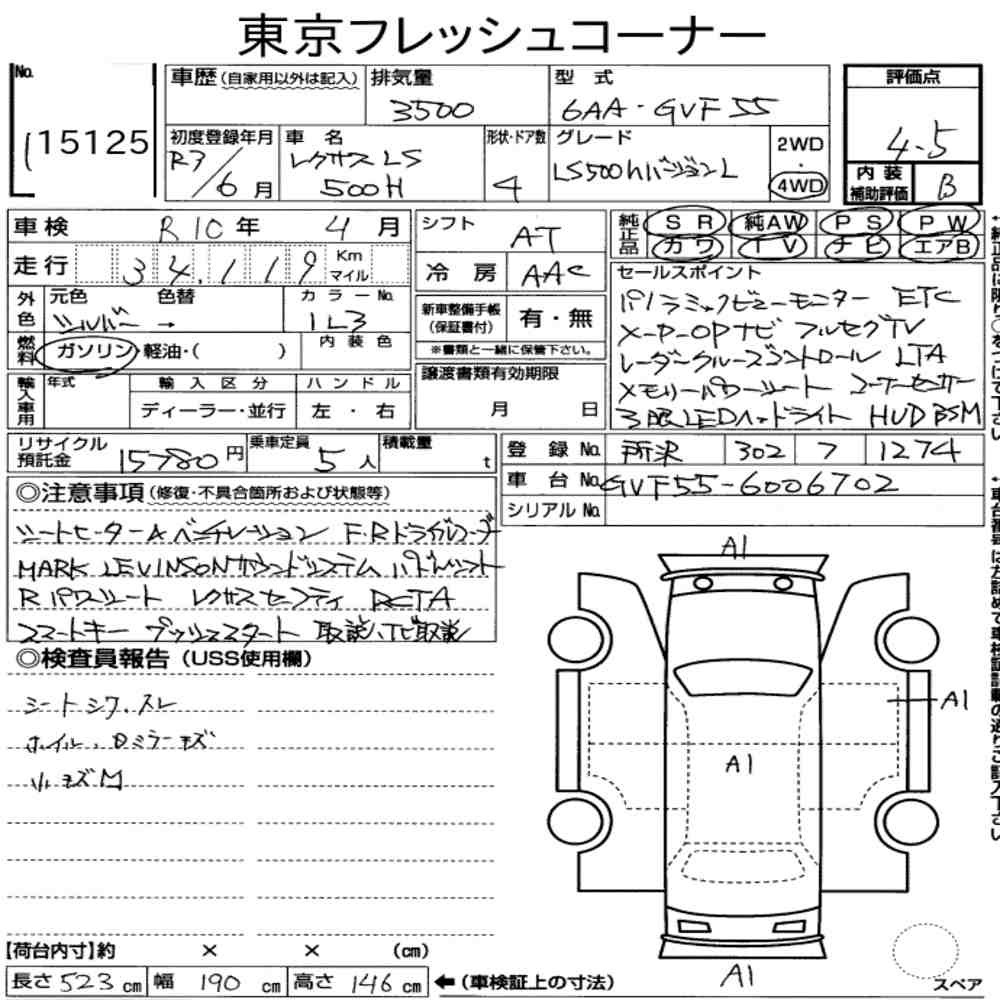 東京フレッシュコーナー
No.
15125
車歴(自家用以外は記入)
排気量
3500
型 式
6AA-GVF55
評価点
4.5
初度登録年月
R3/6月
車 名
レクサスLS
500H
形状・ドア数
4
グレード
LS500hバージョンL
2WD
・
4WD
内装
補助評価
B
車検
R10年 4月
走行
34,119
Km
マイル
シフト
AT
冷房
AAC
純正品
SR 純AW PS PW
カワ TV ナビ エアB
外色
元色 色替
シルバー →
カラーNo.
1L3
燃料
ガソリン・軽油・( )
内装色
新車整備手帳
(保証書付)
有・無
※書類と一緒に保管下さい。
輸入車用
年式
輸入区分
ディーラー・並行
ハンドル
左・右
譲渡書類有効期限
月 日
セールスポイント
パノラミックビューモニター ETC
メーカーOPナビ フルセグTV
レーダークルーズコントロール LTA
メモリーパワーシート コーナーセンサー
3眼LEDヘッドライト HUD BSM
リサイクル
預託金
15780円
乗車定員
5人
積載量
t
登録No.
所沢 302 7 1274
車台No.
GVF55-6006702
シリアルNo.
◎注意事項(修復・不具合箇所および状態等)
シートヒーター&ベンチレーション F・Rドラレコ
MARK LEVINSONサウンドシステム パドルシフト
Rパワーシート レクサスセーフティ RCTA
スマートキー プッシュスタート 取説、ナビ取説
◎検査員報告(USS使用欄)
シートシワ、スレ
ホイル、Dミラーキズ
小キズM
A1
A1
A1
A1
スペア
【荷台内寸】約 × × (cm)
長さ523cm
幅 190cm
高さ146cm
←(車検証上の寸法)